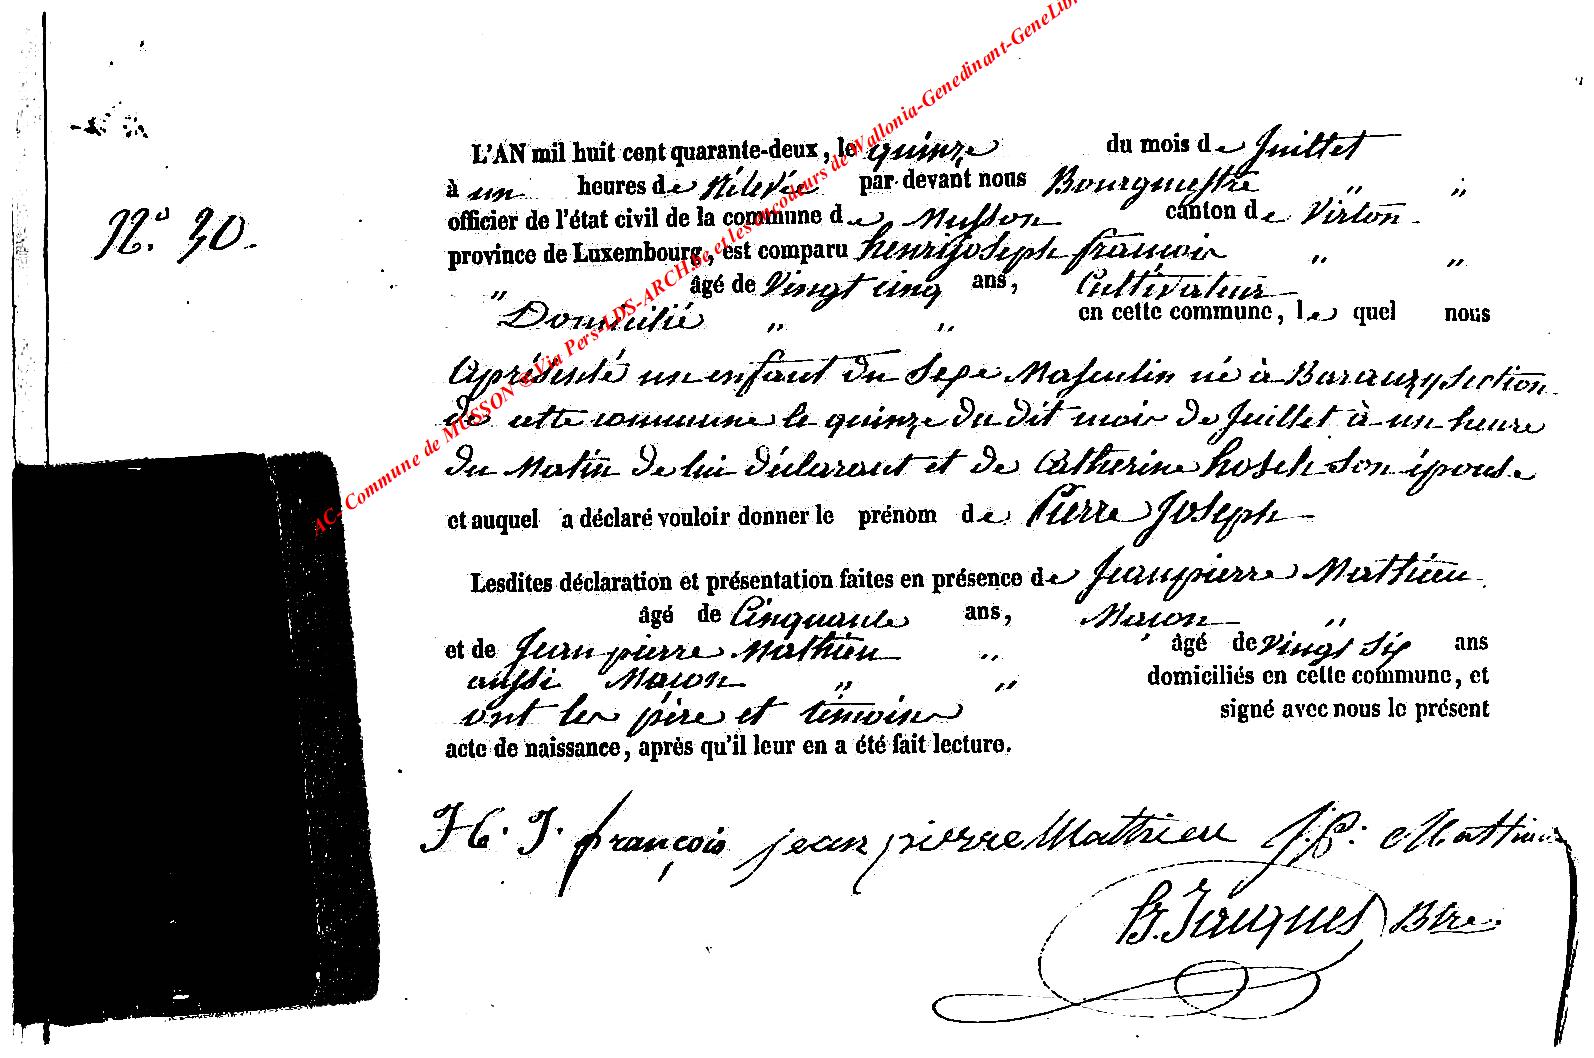 AC- Commune de MUSSON ©Via Pers-LDS-ARCH.be et les encodeurs de Wallonia-Genedinant-GeneLib
L'AN mil huit cent quarante-deux, le quinze du mois de Juillet
à un heures de Rélevée par devant nous Bourgmestre " "
officier de l'état civil de la commune de Musson canton de Virton
province de Luxembourg, est comparu henry joseph francois " "
" âgé de Vingt cinq ans, Cultivateur
Domicilié " " en cette commune, le quel nous
N.° 30.
a présenté un enfant du Sexe Masculin né à Baranzy section
de cette commune le quinze du dit mois de Juillet à un heure
du Matin de lui déclarant et de Catherine hosch son épouse
et auquel a déclaré vouloir donner le prénom de Pierre Joseph
Lesdites déclaration et présentation faites en présence de Jean pierre Mathieu
âgé de Cinquante ans, Macon "
et de Jean pierre Mathieu " âgé de vingt six ans
aussi Macon " " domiciliés en cette commune, et
ont les père et témoins signé avec nous le présent
acte de naissance, après qu'il leur en a été fait lecture.
H. J. françois jean pierre Mathieu J. P. Mathieu
Jacques Btre